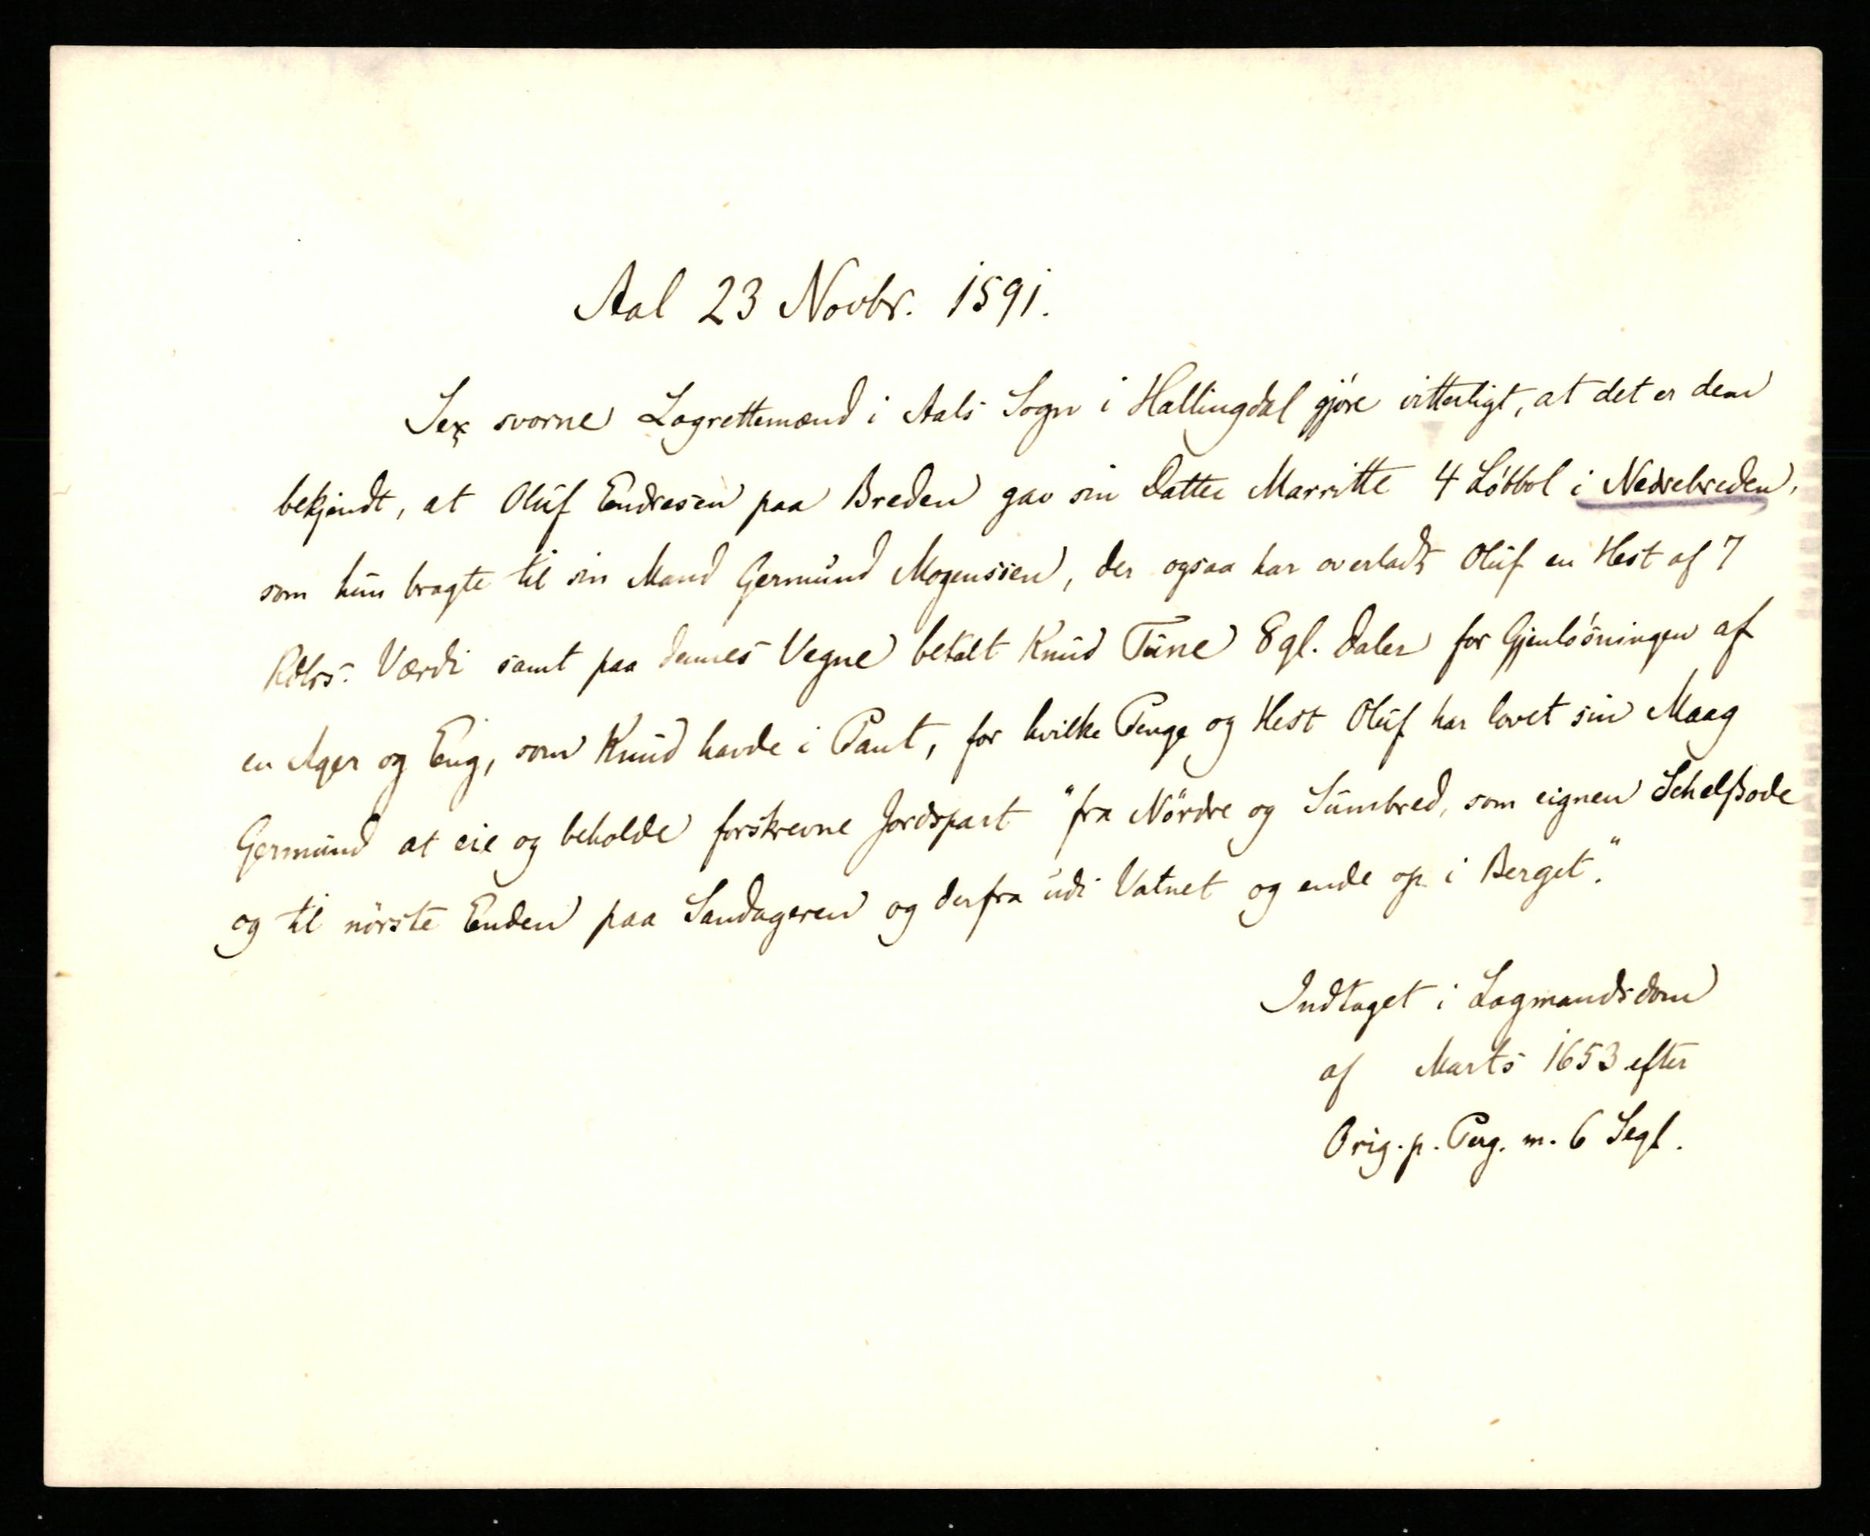 Aal 23 Novbr. 1591.
Sex svorne Lagrettemænd i Aals Sogn i Hallingdal gjöre vitterligt, at det er dem
bekjendt, at Oluf Endresen paa Breden gav sin Datter Marritte 4 Löbbol i Nedrebreden,
som hun bragte til sin Mand Germund Mogenssen, der ogsaa har overladt Oluf en Hest af 7
Rdlrs. Værdi samt paa dennes Vegne betalt Knud Tune 8 gl. Daler for Gjenlösningen af
en Ager og Eng, som Knud havde i Pant, for hvilke Penge og Hest Oluf har lovet sin Maag
Germund at eie og beholde forskrevne Jordspart "fra Nördre og Sunbred, som eignen Schelßode
og til nörste Enden paa Sandageren og derfra udi Vatnet og ende op i Berget."
Indtaget i Lagmandsdom
af Marts 1653 efter
Orig. p. Perg. m. 6 Segl.